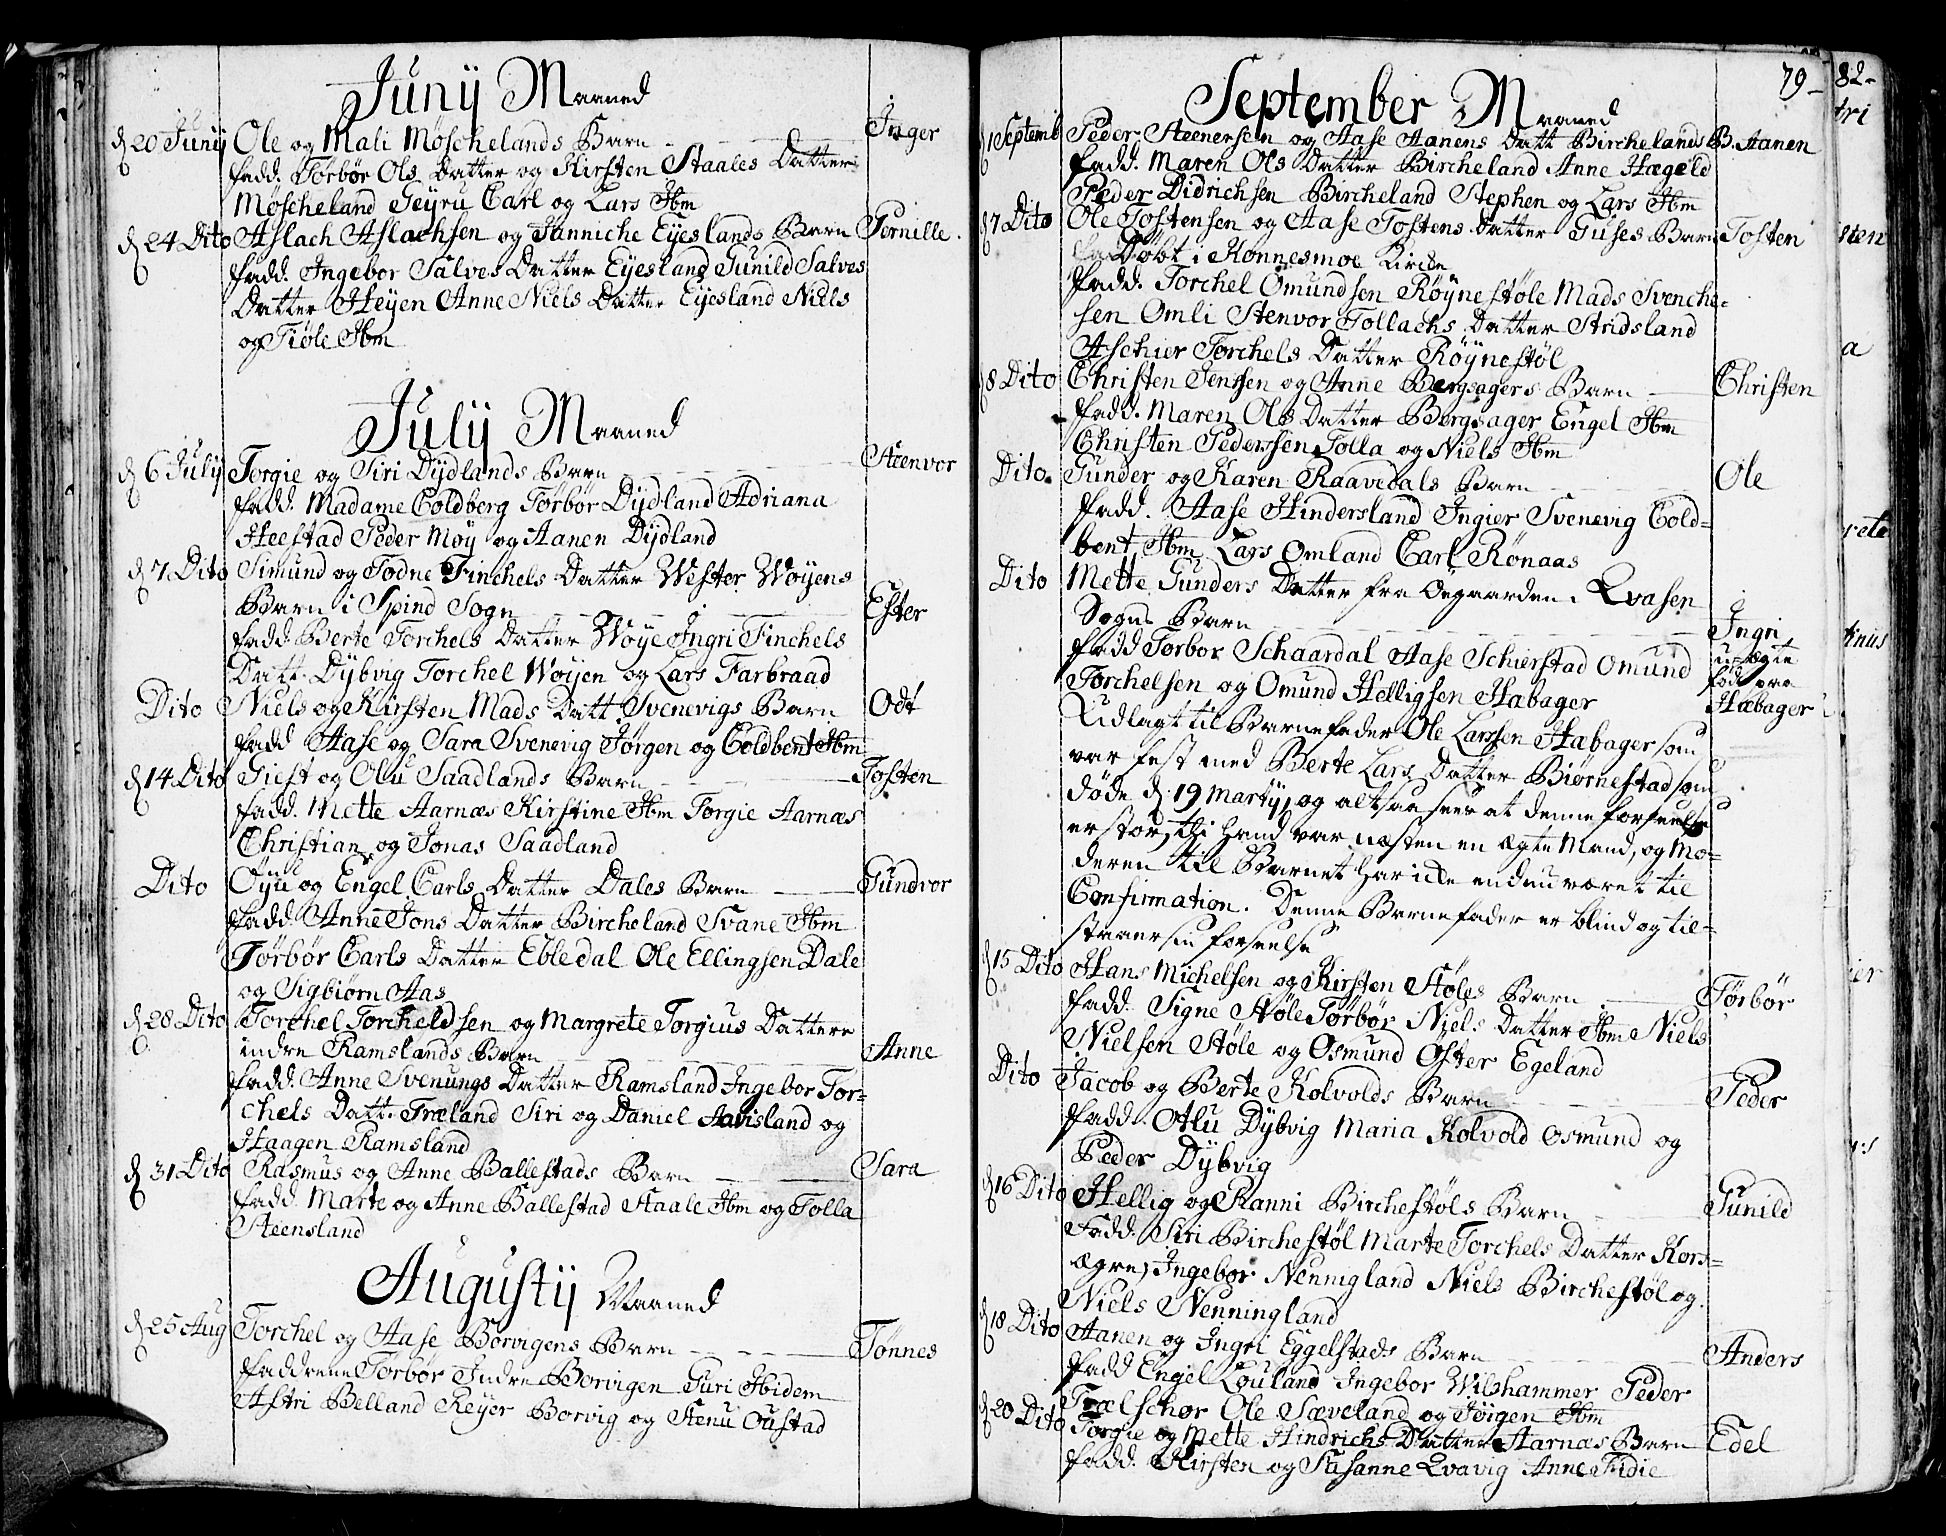 Junij Maaned
d 20 Junij Ole og Mali Möschelands Barn Inger
fadd. Törbör Ols Datter og Kirsten Staales Datter
Möscheland Geyru Carl og Lars Ibm
d 24 Dito Aslach Aslachsen og Janniche Eyeslands Barn Pernille.
fadd. Ingebor Salves Datter Eyesland Gunild Salves
Datter Heyen Anne Niels Datter Eyesland Niels
og Tiöle Ibm
Julij Maaned
d 6 July Torgie og Siri Dydlands Barn Steenvor
fadd. Madame Coldberg Törbör Dydland Adriana
Heestad Peder Moy og Aanen Dydland
d 7. Dito Simund og Todne Finchels Datter Wester Woyens
Barn i Spind Sogn Ester
fadd. Berte Torchels Datter Woye Ingri Finchels
Datt. Dybvig Torchel Woyen og Lars Farbraad
Dito Niels og Kirsten Mads Datt. Svenevigs Barn Odt
fadd Aase og Sara Svenevig Jörgen og Coldbent Ibm
d 14 Dito Giest og Olu Saadlands Barn Tosten
fadd. Mette Aarnæs Kirstine Ibm Torgie Aarnæs
Christian og Jonas Saadland
Dito Öyu og Engel Carls Datter Dales Barn Gundvor
fadd. Anne Jons Datter Bircheland Svane Ibm
Törbör Carls Datter Ebledal Ole Ellingsen Dale
og Sigbiörn Aas
d 28 Dito Torchel Torcheldsen og Margrete Torgius Dattere
indre Ramslands Barn Anne
fadd. Anne Svenungs Datter Ramsland Ingebor Tor=
chels Datt. Træland Siri og Daniel Aavisland og
Haagen Ramsland
d 31. Dito Rasmus og Anne Ballestads Barn Sara
fadd. Marte og Anne Ballestad Staale Ibm og Tolla
Steensland
Augustij Maaned
d 25 Aug Torchel og Aase Borvigens Barn Tönnes
faddrene Torbör Indre Borvigen Guri Ibidem
Astri Belland Reyer Borvig og Stenu Oustad
79-
September Maaned
d 1 Septemb Peder Steenersen og Aase Aanens Datt Birchelands B. Aanen
fadd. Maren Ols Datter Bircheland Anne Hægeld
Peder Didrichsen Bircheland Stephen og Lars Ibm
d 7 Dito Ole Tostensen og Aase Tostens Datter Guses Barn Tosten
Döbt i Konnesmoe Kirche
fadd. Torchel Omundsen Röynestöle Mads Svenche=
sen Omli Stenvor Tollachs Datter Stridsland
Aschier Torchels Datter Röynestöl
d 8 Dito Christen Jenssen og Anne Bergsagers Barn Christen
fadd. Maren Ols Datter Bergsager Engel Ibm
Christen Pederssen Tolla og Niels Ibm
Dito. Gunder og Karen Raavedals Barn Ole
fadd. Aase Hindersland Ingier Svenevig Cold=
bent Ibm Lars Omland Carl Rönaas
Dito Mette Gunders Datter fra Oegaarden i Qvasen
Sogns Barn Ingri
uægte
fadd Torbor Schaardal Aase Schierstad Omund föd paa
Torchelsen og Omund Helligsen Hæbager Hæbager
Udlagt til Barnefader Ole Larssen Hæbager som
var fest med Berte Lars Datter Biörnestad som
döde d: 19 Martij, og altsaa sees at denne forseelse
er stor, thi hand var næsten en ægte Mand, og Mo=
deren til Barnet har icke endnu været til
Confirmation. Denne Barnefader er blind og til=
staaer sin forseelse
d 15 Dito Hans Michelsen og Kirsten Stöles Barn Törbör
fadd. Signe Stöle Törbör Niels Datter Ibm Niels
Nielsen Stöle og Osmund Öster Egeland
Dito Jacob og Berte Kolvolds Barn Peder
fadd. Olu Dybvig Maria Kolvold Osmund og
Peder Dybvig
d 16 Dito Hellig og Ranni Birchestöls Barn Gunild
Fadd. Siri Birchestöl Marte Torchels Datter Kors=
ægre, Ingebor Nennigland Niels Birchestöl og
Niels Nenningland
d 18 Dito Aanen og Ingri Eggelstads Barn Anders
fadd Engel Louland Ingebor Wilshammer Peder
Trælschor Ole Sæveland og Jörgen Ibm
d 20 Dito Torgie og Mette Hindrichs Datter Aarnæs Barn Edel
fadd. Kirsten og Susanne Qvavig Anne Fidie
82-
tri
sten
a
rete
tinus
ier